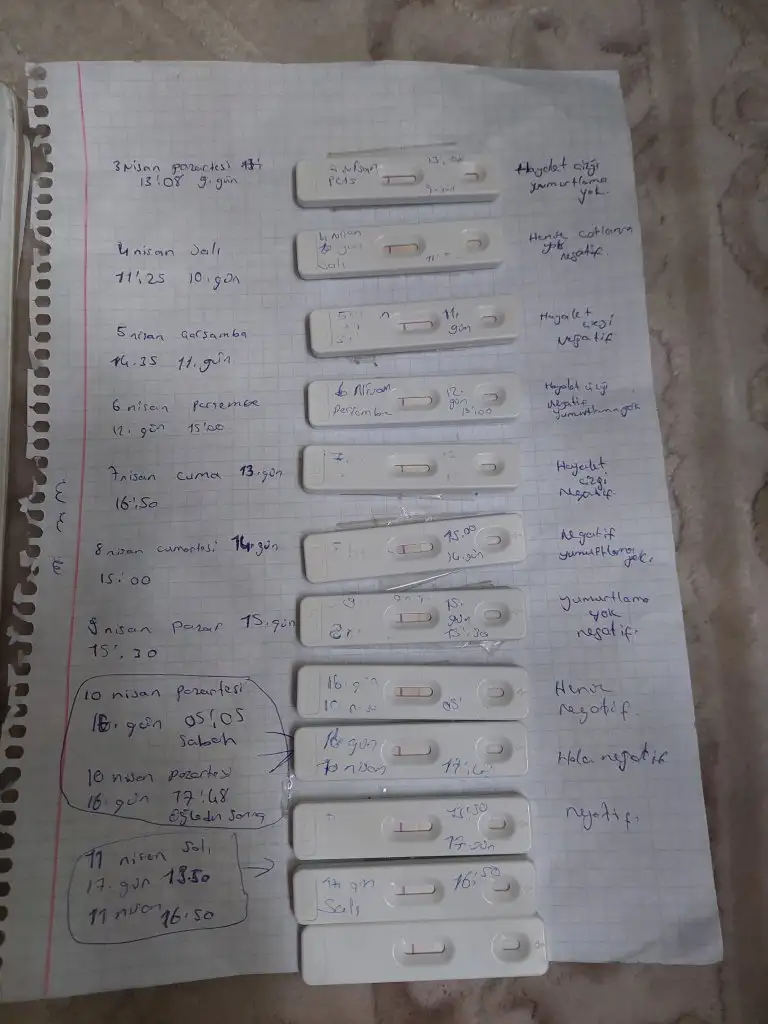 3 Nisan pazartesi
13:08 9. gün
Hayalet çizgi
yumurtlama
yok.
13.08
4 nisan Salı
11:25 10. gün
4 nisan
gün
Salı
Henüz
yok
negatif.
5 nisan Çarşamba
14.35 11. gün
11.
gün
Hayalet
çizgi
Negatif
6 nisan perşembe
12. gün 15:00
6 Nisan
Perşembe
12.
gün
15:00
Hayalet çizgi
negatif
yumurtlama yok
7 nisan cuma 13. gün
16:50
7.
Hayalet
çizgi
Negatif.
8 nisan cumartesi 14. gün
15:00
15.00
14. gün
Negatif
yumurtlama
yok.
9 nisan pazar 15. gün
15:30
9
15.
gün
15:30
yumurtlama
yok
negatif.
10 nisan pazartesi
16. gün 05:05
Sabah
10 nisan pazartesi
16. gün 17:48
öğleden sonra
16. gün
05:
Henüz
negatif.
16 gün
10 nisan
17:48
Hala negatif
13:50
17. gün
negatif.
11 nisan Salı
17. gün 13.50
11 nisan 16:50
17. gün
Salı
16:50